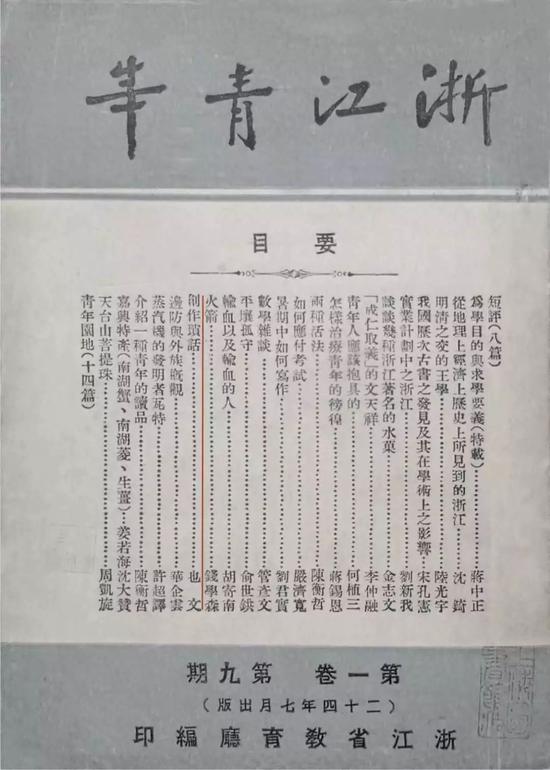 浙江青年
要目
短評(八篇)
爲學目的與求學要義(特載)……蔣中正
從地理上經濟上歷史上所見到的浙江……沈錡
明清之交的王學……陸光宇
我國歷次古書之發見及其在學術上之影響……宋孔憲
實業計劃中之浙江……劉新我
談談幾種浙江著名的水菓……金志文
「成仁取義」的文天祥……李仲融
青年人應該抱具的……何植三
怎樣治療青年的徬徨……蔣錫恩
兩種活法……陳衡哲
如何應付考試……嚴濟寬
暑期中如何寫作……劉君實
數學雜談……管彥文
平壤孤守……俞世鉷
輸血以及輸血的人……胡寄南
火箭……錢學森
創作瑣話……也文
邊防與外族概觀……華企雲
蒸汽機的發明者瓦特……許超譯
介紹一種青年的讀品……陳衡哲
嘉興特產(南湖蟹、南湖菱、生薑)…姜若海沈大贊
天台山菩提珠……周凱旋
青年園地(十四篇)
第一卷 第九期
(二十四年七月出版)
浙江省教育廳編印